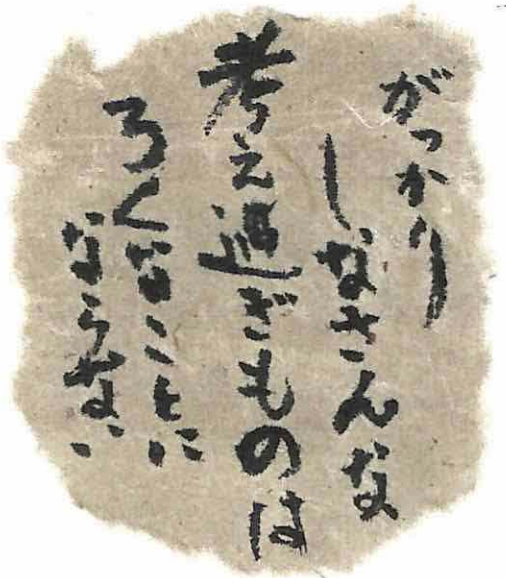 がっかり
しなさんな
考え過ぎものは
ろくなことに
ならない